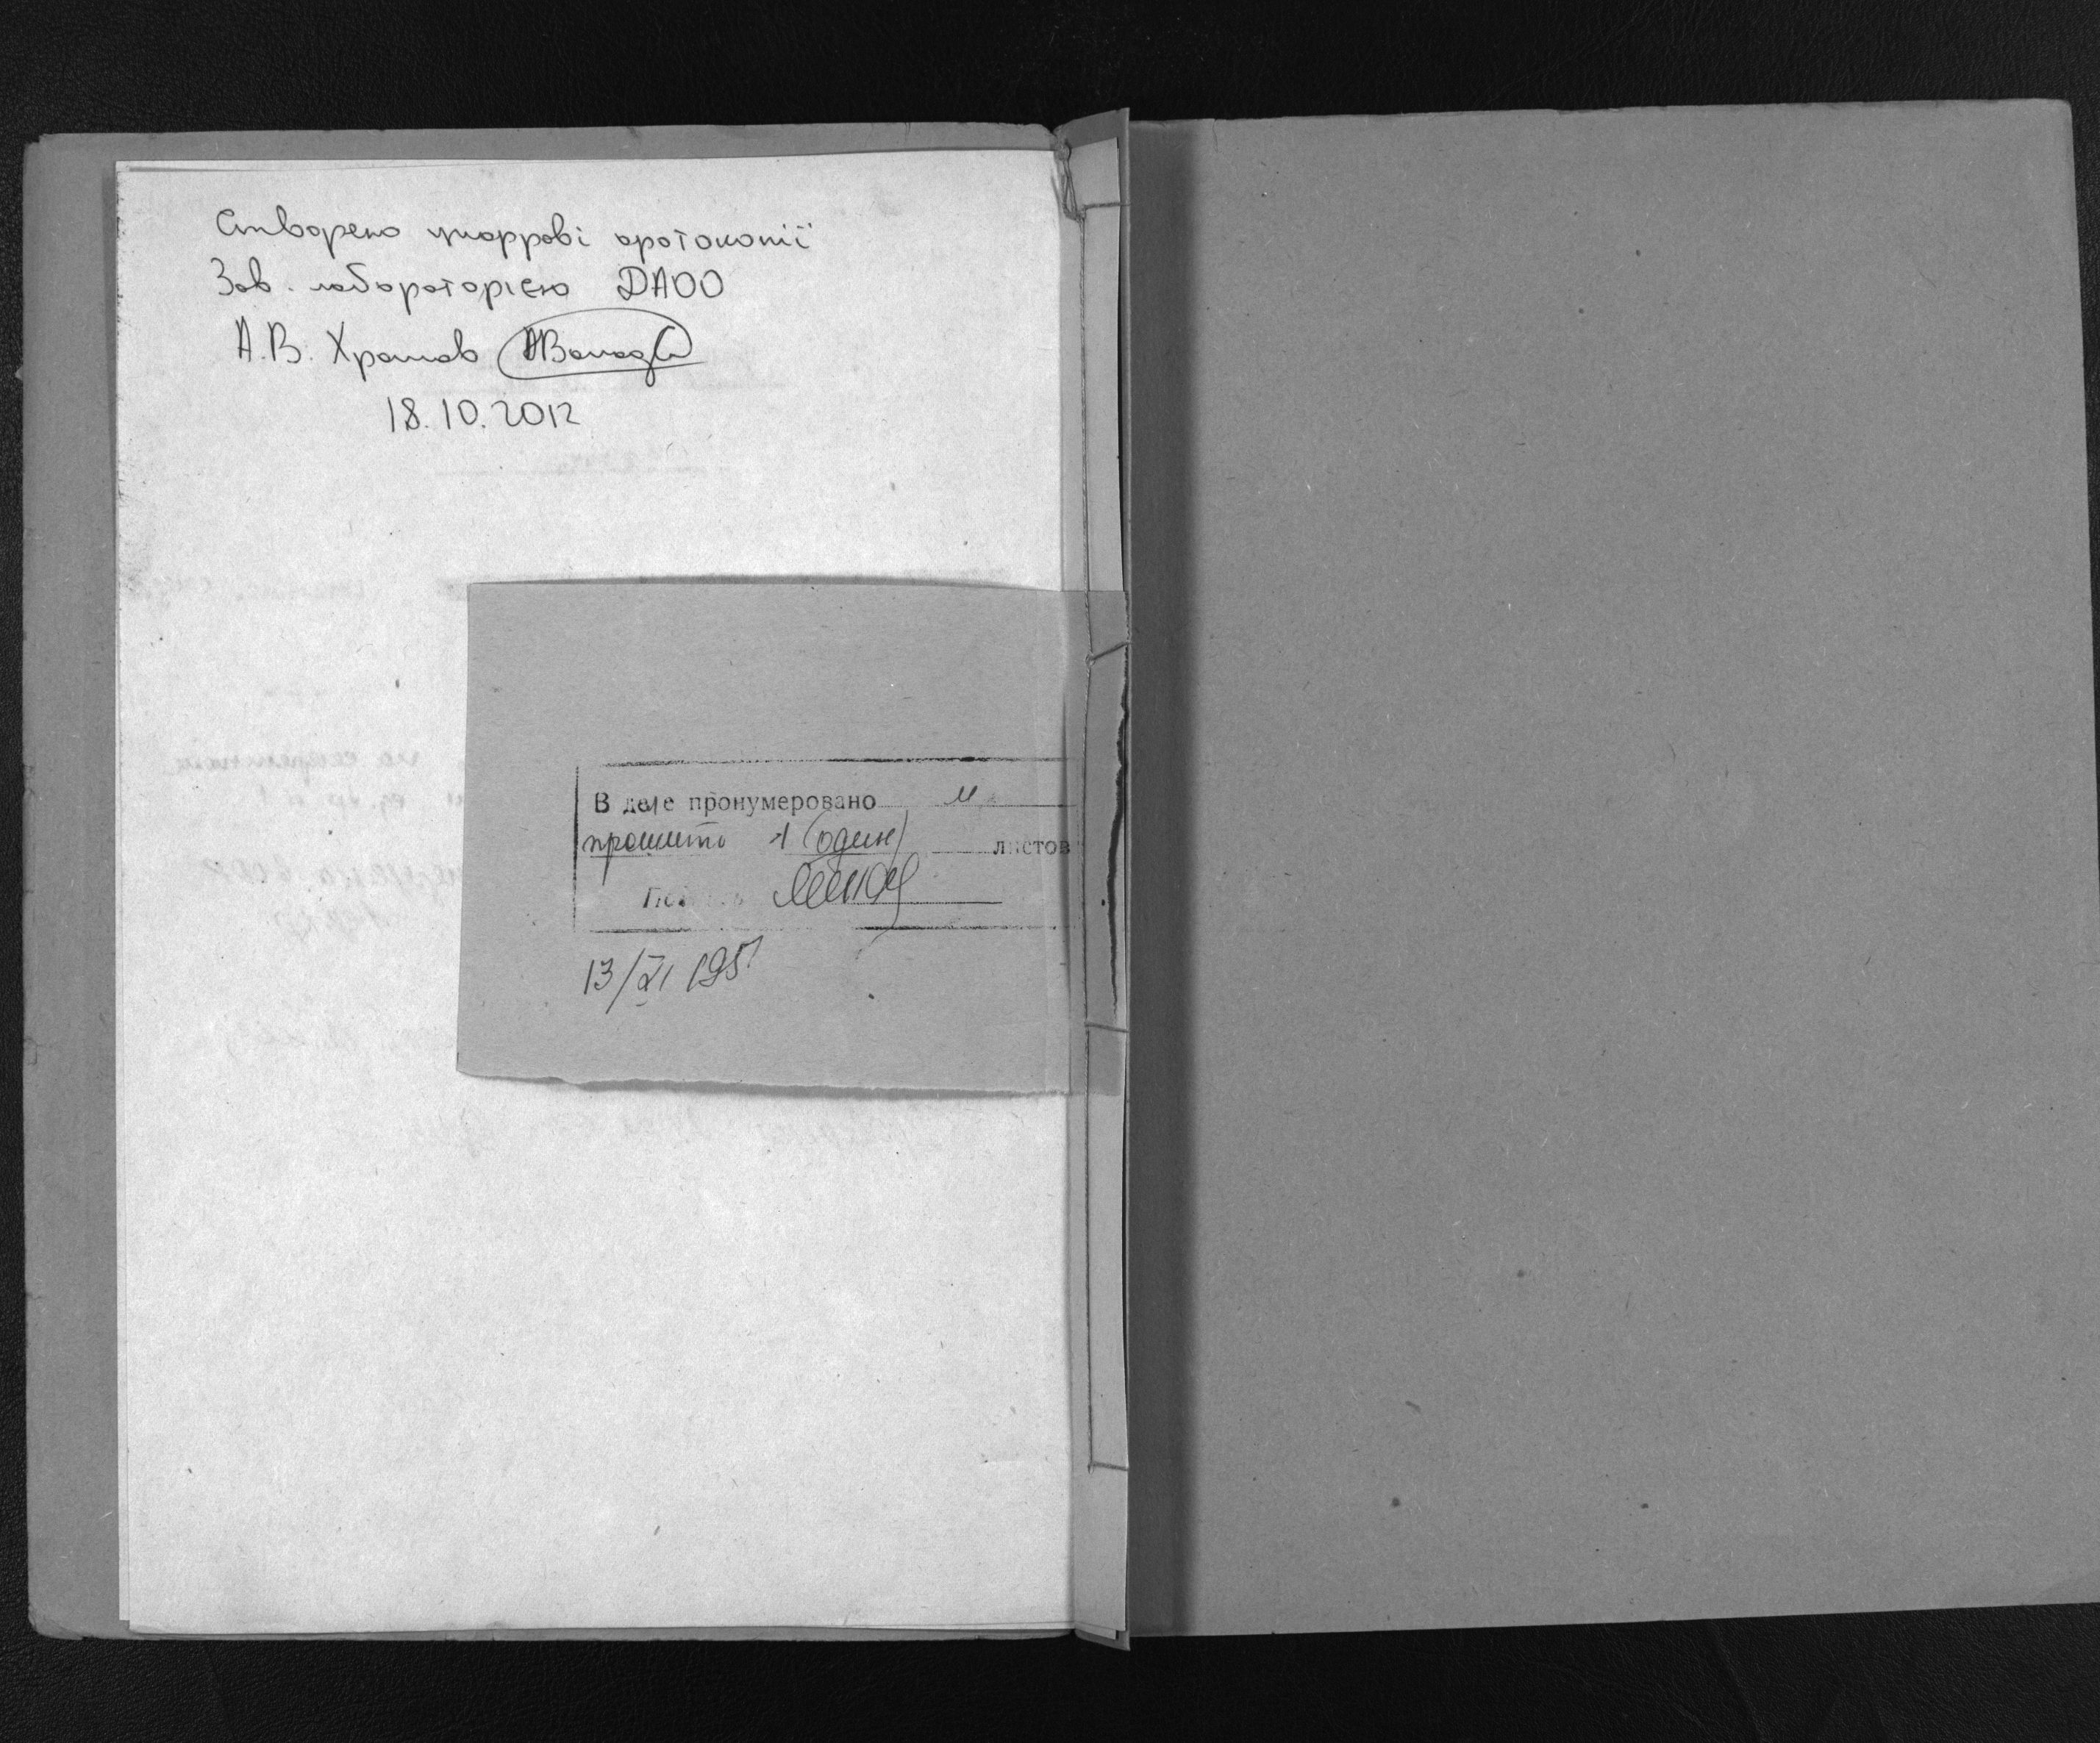 Створено цифрові фотокопії
Зав. лабораторією ДАОО
А.В. Храмов
18.10.2012
В деле пронумеровано и
прошито 1 (один) листов
13/XI 1957